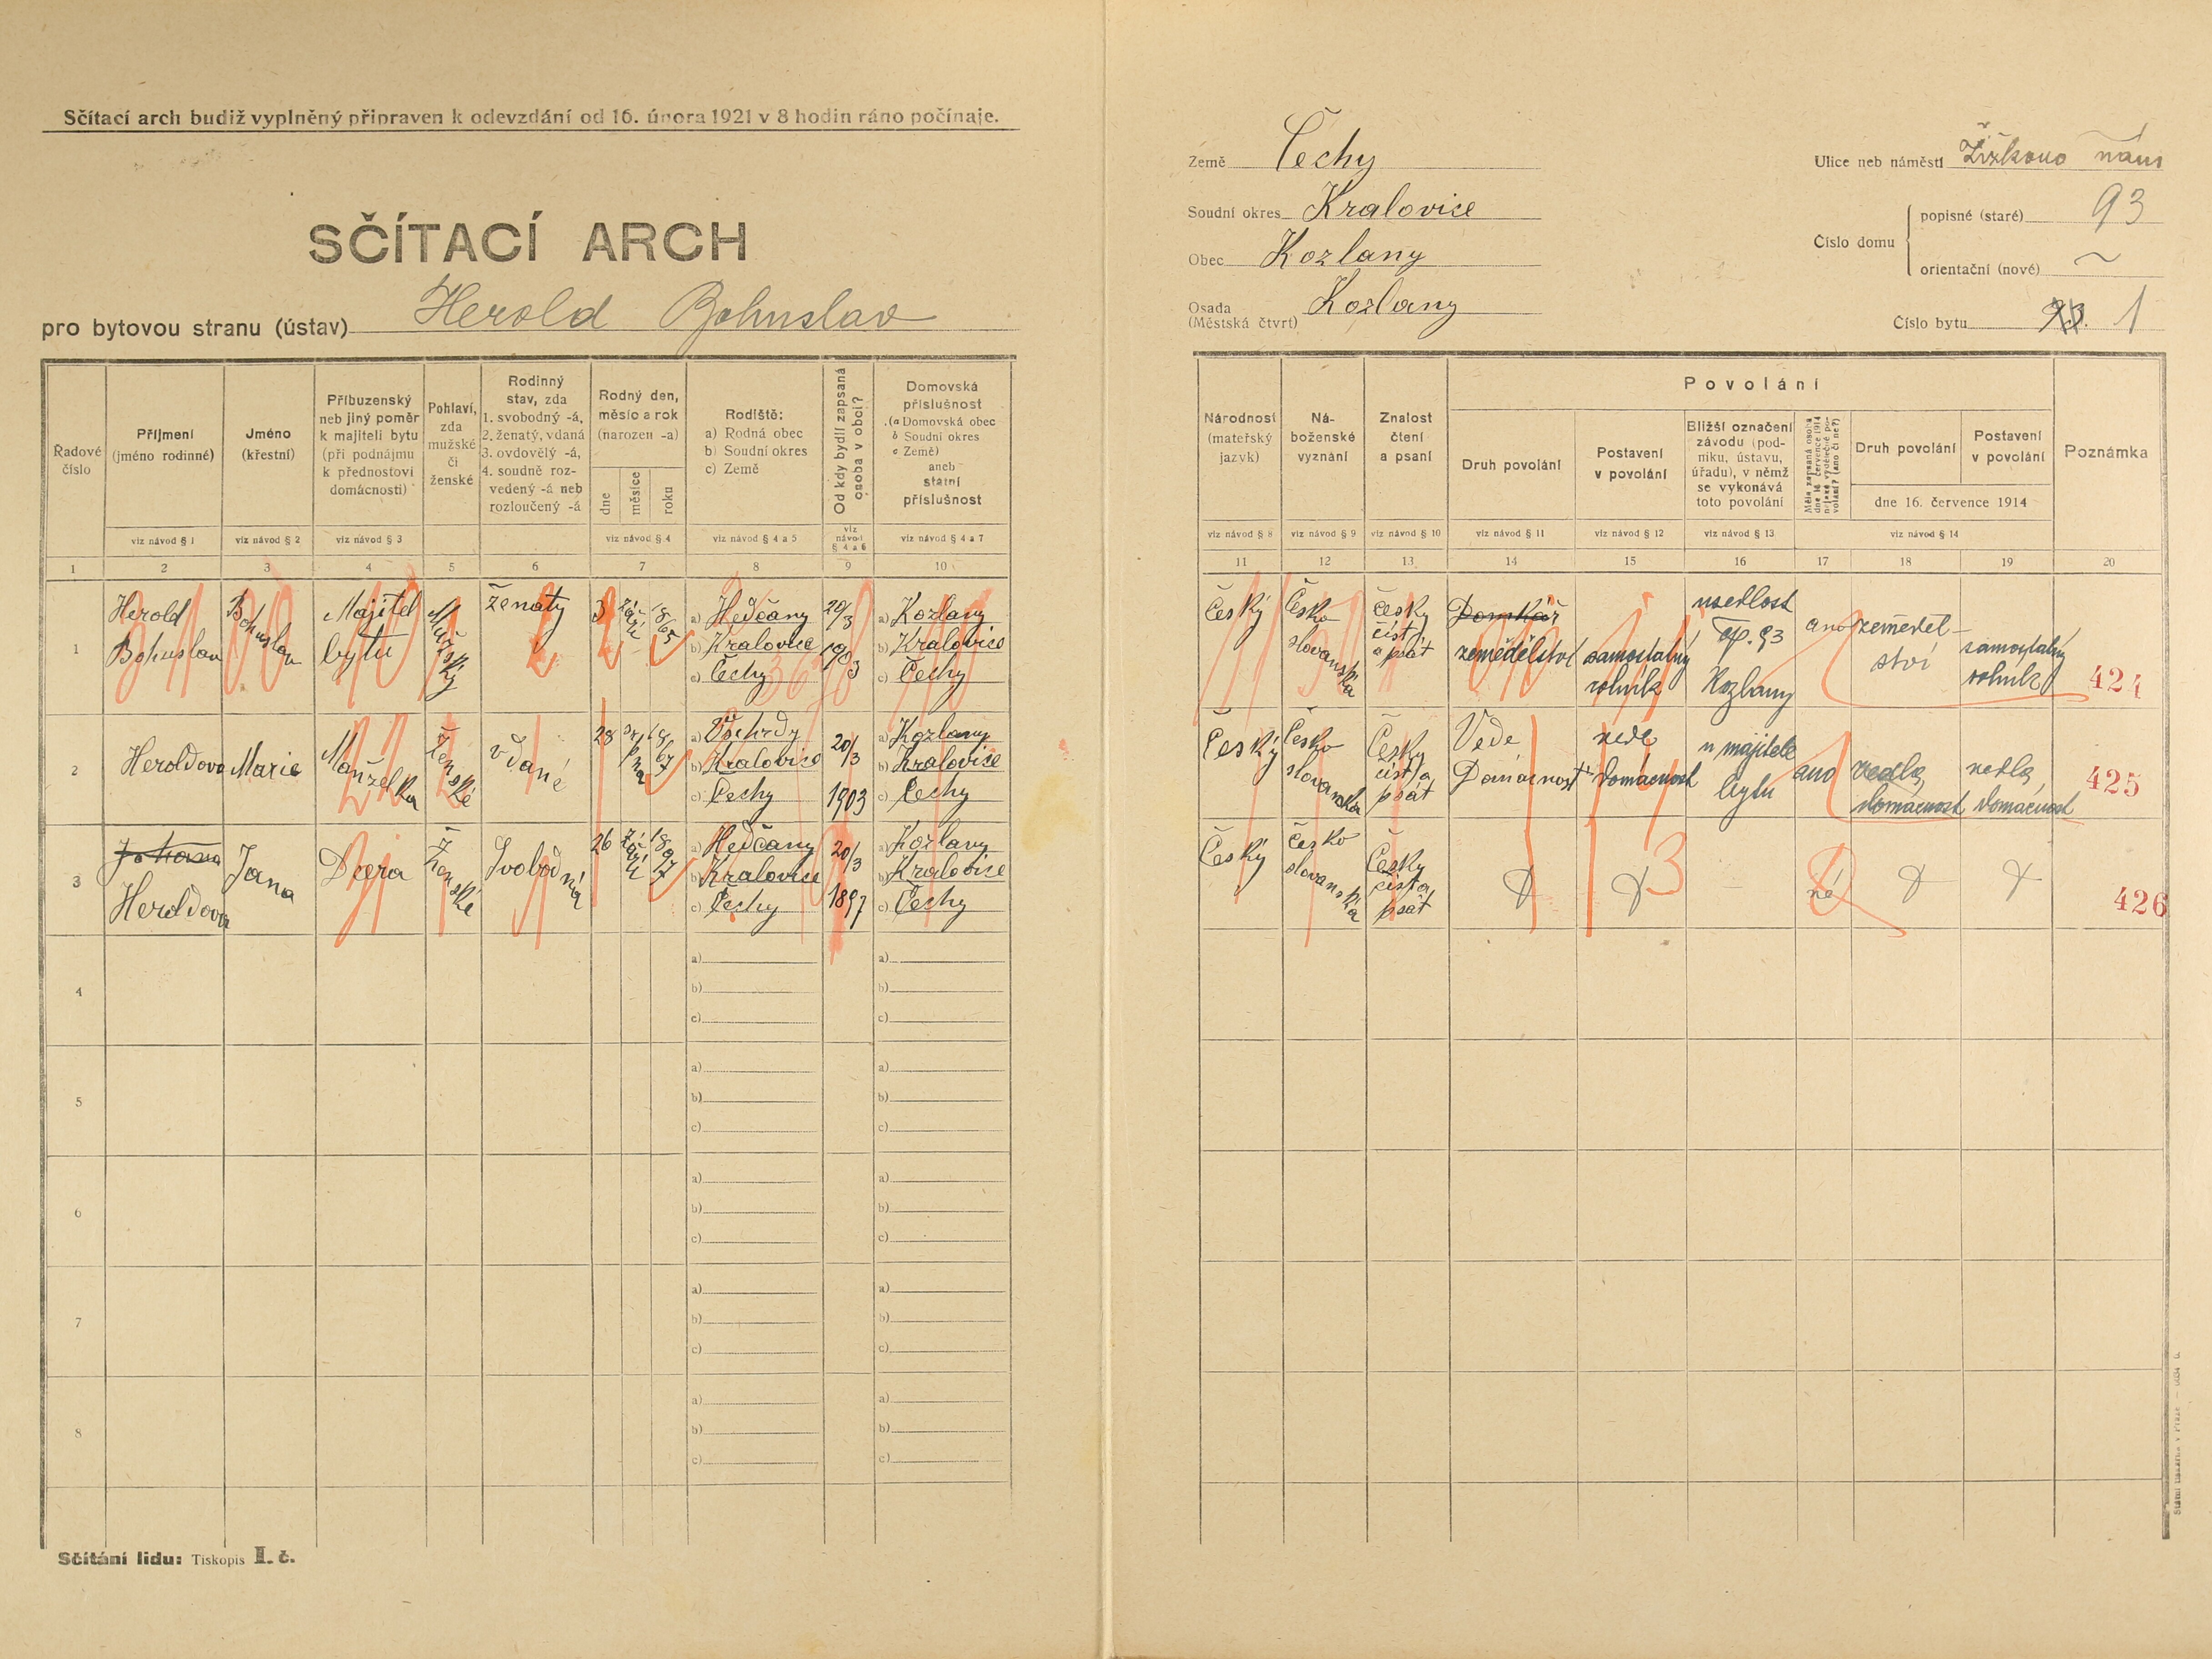 Sčítací arch budiž vyplněný připraven k odevzdání od 16. února 1921 v 8 hodin ráno počínaje.
SČÍTACÍ ARCH
pro bytovou stranu (ústav) Herold Bohuslav
Země Čechy
Soudní okres Kralovice
Obec Kozlany
Osada
(Městská čtvrť) Kozlany
Ulice neb náměstí Žižkovo nám
Číslo domu
popisné (staré) 93
orientační (nové) ~
Číslo bytu 1
Řadové číslo
Příjmení
(jméno rodinné)
viz návod § 1
Jméno
(křestní)
viz návod § 2
Příbuzenský
neb jiný poměr
k majiteli bytu
(při podnájmu
k přednostovi
domácnosti)
viz návod § 3
Pohlaví,
zda
mužské
či
ženské
Rodinný
stav, zda
1. svobodný -á,
2. ženatý, vdaná
3. ovdovělý -á,
4. soudně roz-
vedený -á neb
rozloučený -á
Rodný den,
měsíc a rok
(narozen -a)
dne
měsíce
roku
viz návod § 4
Rodiště:
a) Rodná obec
b) Soudní okres
c) Země
viz návod § 4 a 5
Od kdy bydlí zapsaná
osoba v obci?
viz
návod
§ 4 a 6
Domovská
příslušnost
(a Domovská obec
b Soudní okres
c Země)
aneb
státní
příslušnost
viz návod § 4 a 7
Národnost
(mateřský
jazyk)
viz návod § 8
Ná-
boženské
vyznání
viz návod § 9
Znalost
čtení
a psaní
viz návod § 10
Povolání
Druh povolání
viz návod § 11
Postavení
v povolání
viz návod § 12
Bližší označení
závodu (pod-
niku, ústavu,
úřadu), v němž
se vykonává
toto povolání
viz návod § 13
Měla zapsaná osoba
dne 16. července 1914
nějaké výdělečné po-
volání? (ano či ne?)
Druh povolání
Postavení
v povolání
dne 16. července 1914
viz návod § 14
Poznámka
1 2 3 4 5 6 7 8 9 10
11 12 13 14 15 16 17 18 19 20
1
Herold
Bohuslav
Bohuslav
Majitel
bytu
Mužský
ženatý
3 září 1865
a) Hedčany
b) Kralovice
c) Čechy
20/3
1903
a) Kozlany
b) Kralovice
c) Čechy
Český
Česko
slovanská
česky
číst
a psát
Domkář
zemědělství
samostatný
rolník
usedlost
čp. 93
Kozlany
ano
zemědel-
ství
samostatný
rolník
424
2
Heroldova
Marie
Manželka
Ženské
vdané
28 srpna 1867
a)
b) Kralovice
c) Čechy
20/3
1903
a) Kozlany
b) Kralovice
c) Čechy
Český
Česko
slovanska
Česky
číst a
psát
Vede
Domácnost
vede
domácnost
u majitele
bytu
ano
vedla
domácnost
vedla
domácnost
425
3
Johana
Heroldova
Jana
Dcera
Ženské
Svobodná
26 září 1897
a) Hedčany
b) Kralovice
c) Čechy
20/3
1897
a) Kozlany
b) Kralovice
c) Čechy
Český
česko
slovanska
Česky
číst a
psát
né
426
4
a)
b)
c)
a)
b)
c)
5
a)
b)
c)
a)
b)
c)
6
a)
b)
c)
a)
b)
c)
7
a)
b)
c)
a)
b)
c)
8
a)
b)
c)
a)
b)
c)
Sčítání lidu: Tiskopis I. č.